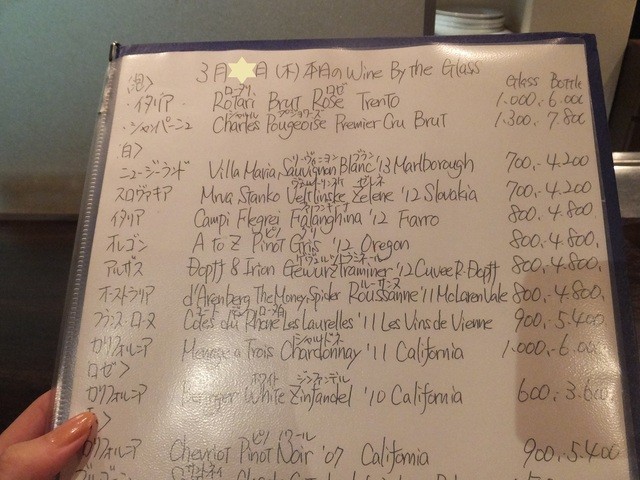 3月 日(木)本日のWine By the Glass
Glass Bottle
泡>
・イタリア ロータリ ロゼ Rotari Brut Rose Trento 1.000.- 6.000
・シャンパーニュ シャルル Charles Pougeoise Premier Cru Brut 1.300.- 7.800
白>
ニュージーランド Villa Maria Sauvignon Blanc '13 Marlborough 700.- 4.200
スロヴァキア Mrva Stanko Veltlinske Zelene '12 Slovakia 700.- 4.200
イタリア Campi Flegrei Falanghina '12 Farro 800.- 4.800.
オレゴン ピノ グリ A to Z Pinot Gris '12 Oregon 800.- 4.800.
アルザス Dopff & Irion Gewurztraminer '12 Cuvee R. Dopff 800.- 4.800.
オーストラリア ルーサンヌ d'Arenberg The Money Spider Roussanne '11 McLaren Vale 800.- 4.800.
フランス・ローヌ Cotes du Rhone Les Laurelles '11 Les Vins de Vienne 900.- 5.400
カリフォルニア シャルドネ Menage a Trois Chardonnay '11 California 1.000.- 6.00
ロゼ>
カリフォルニア ホワイト ジンファンデル White Zinfandel '10 California 600.- 3.600
カリフォルニア ピノ ノワール Cheviot Pinot Noir '07 California 900.- 5.400